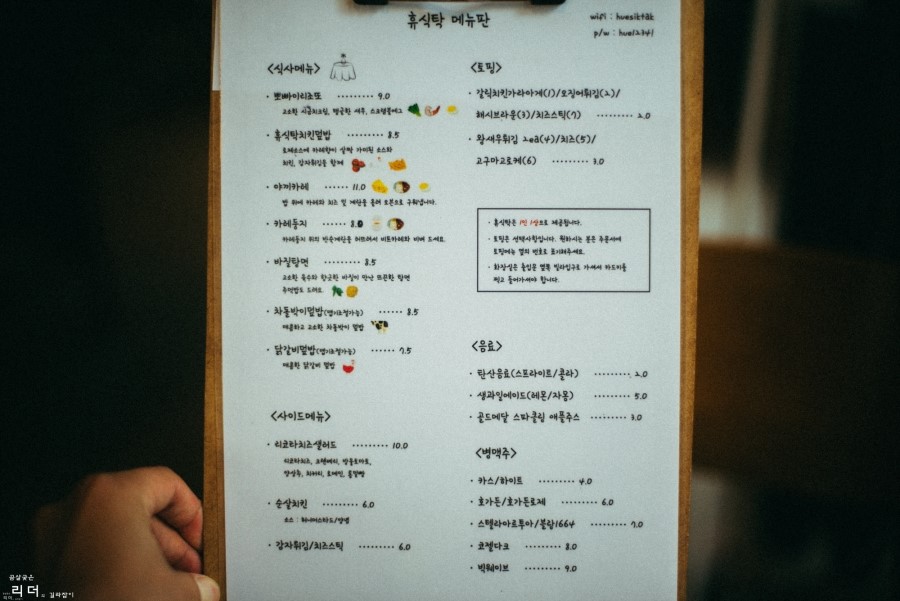 휴식탁 메뉴판
wifi : huesiktak
p/w : hue12341
<식사메뉴>
· 뽀빠이리조또 ·········· 9.0
· 휴식탁치킨덮밥 ·········· 8.5
토마토소스에 카레향이 살짝 가미된 소스와
치킨, 감자튀김을 함께
· 야끼카레 ······ 11.0
밥 위에 카레와 치즈 및 계란을 올려 오븐으로 구워냅니다.
· 카레둥지 ······ 8.0
카레둥지 위의 반숙계란을 터트려서 비트카레와 비벼 드세요.
· 바질탕면 ·········· 8.5
고소한 육수와 향긋한 바질이 만난 뜨끈한 탕면
· 차돌박이덮밥(맵기조절가능) ······ 8.5
매콤하고 고소한 차돌박이 덮밥
· 닭갈비덮밥(맵기조절가능) ······ 7.5
매콤한 닭갈비 덮밥
<사이드메뉴>
· 리코타치즈샐러드 ········· 10.0
리코타치즈, 크랜베리, 방울토마토,
양상추, 치커리, 로메인, 통밀빵
· 순살치킨 ········· 6.0
소스 : 허니머스타드/양념
· 감자튀김/치즈스틱 ·········· 6.0
<토핑>
· 갈릭치킨가라아게(1)/오징어튀김(2)/
해시브라운(3)/치즈스틱(7) ········· 2.0
· 왕새우튀김 2ea(4)/치즈(5)/
고구마고로케(6) ·········· 3.0
· 휴식탁은 1인 1상으로 제공됩니다.
· 토핑은 선택사항입니다. 원하시는 분은 주문서에
토핑메뉴 옆의 번호로 표기해주세요.
· 화장실은 출입문 옆쪽 빌라입구로 가셔서 카드키를
찍고 들어가셔야 합니다.
<음료>
· 탄산음료(스프라이트/콜라) ········· 2.0
· 생과일에이드(레몬/자몽) ·········· 5.0
· 골드메달 스파클링 애플주스 ·········· 3.0
<병맥주>
· 카스/하이트 ·········· 4.0
· 호가든/호가든로제 ·········· 6.0
· 스텔라아르투아/블랑1664 ·········· 7.0
· 코젤다크 ·········· 8.0
· 빅웨이브 ·········· 9.0
곰살궂은
리더의 길라잡이